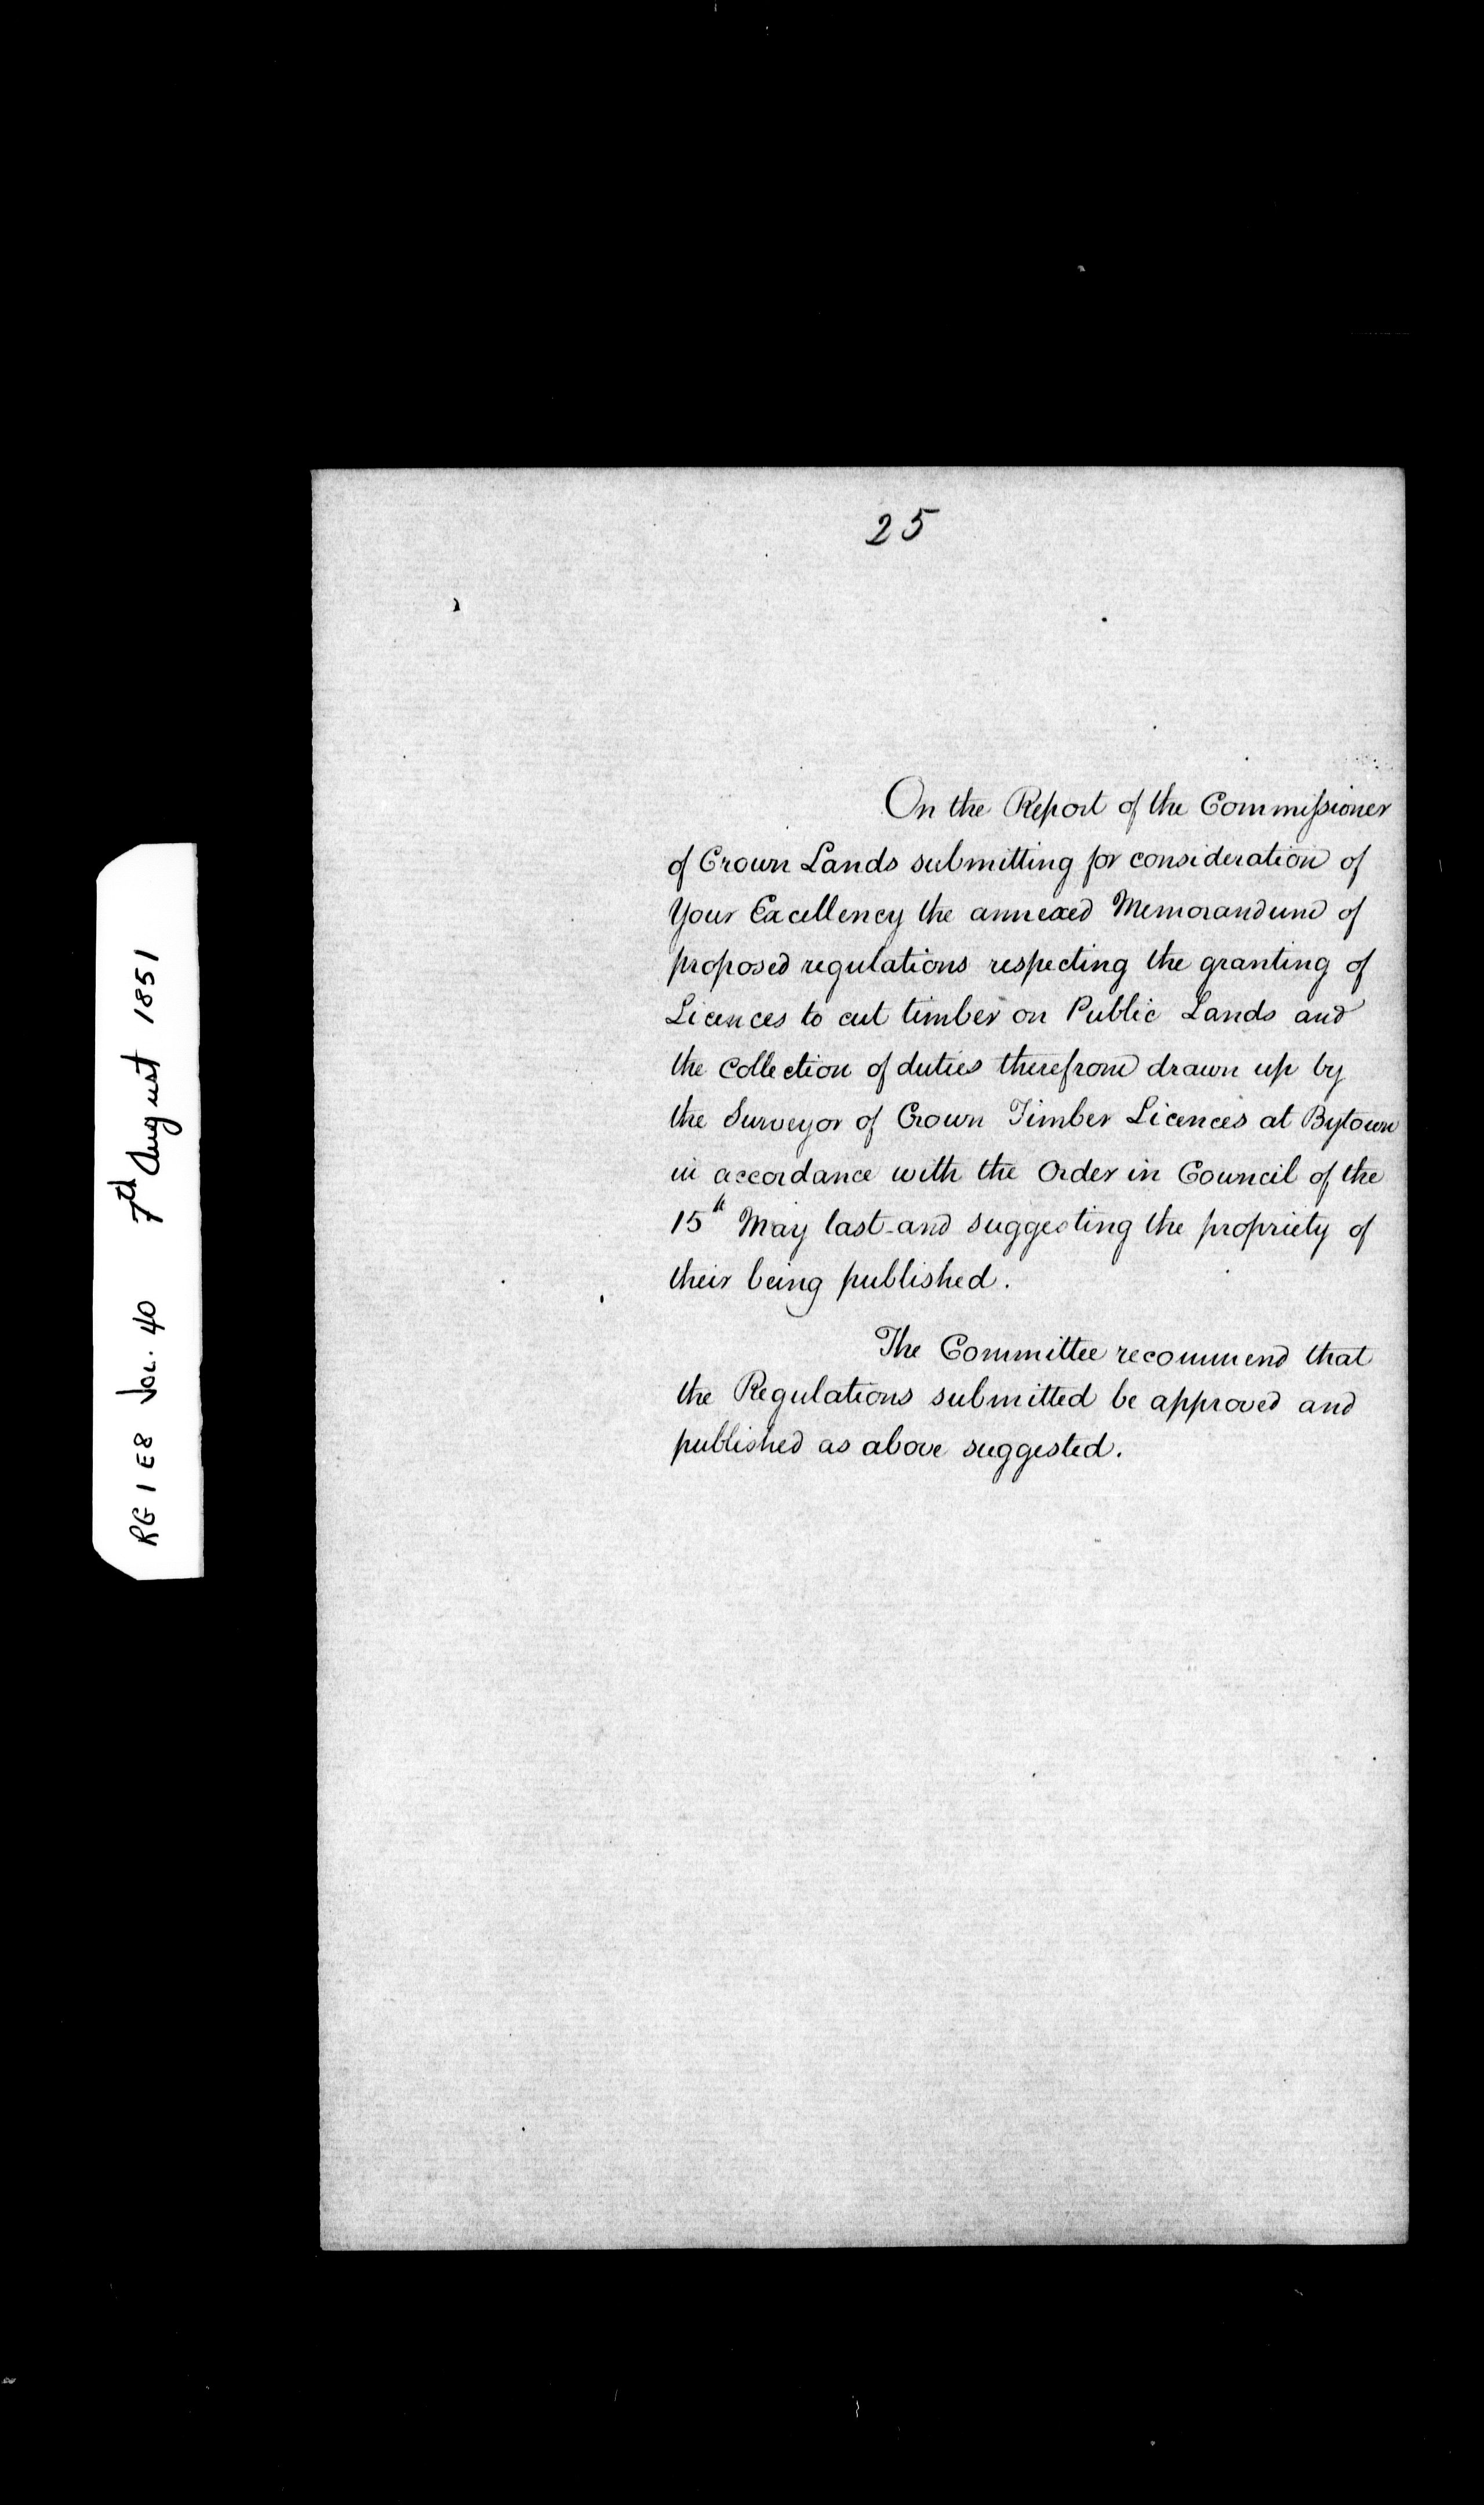 25
On the Report of the Commissioner
of Crown Lands submitting for consideration of
Your Excellency the annexed Memorandum of
proposed regulations respecting the granting of
Licences to cut timber on Public Lands and
the collection of duties therefrom drawn up by
the Surveyor of Crown Timber Licences at Bytown
in accordance with the Order in Council of the
15th May last and suggesting the propriety of
their being published.
The Committee recommend that
the Regulations submitted be approved and
published as above suggested.
RG 1 E8 VOL. 40 7th August 1851